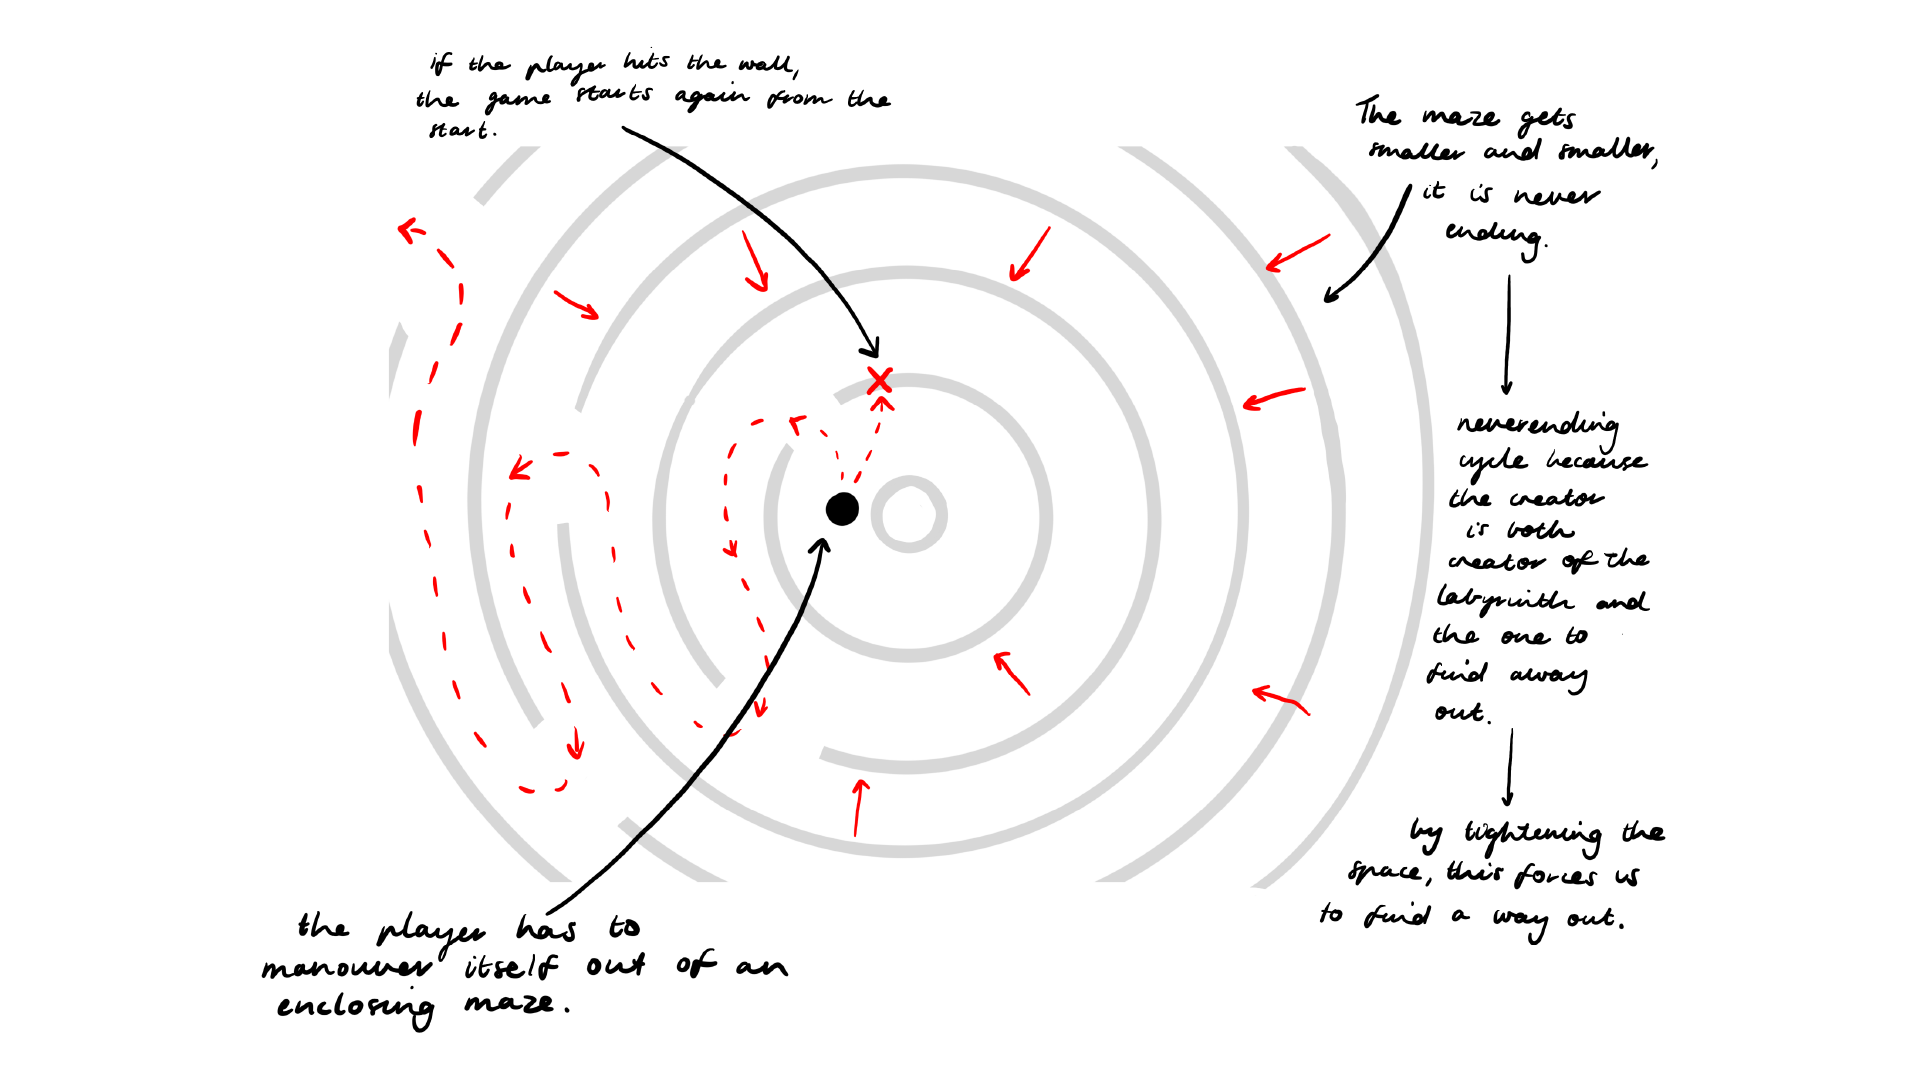 if the player hits the wall,
the game starts again from the
start.
The maze gets
smaller and smaller,
it is never
ending.
neverending
cycle because
the creator
is both
creator of the
labyrinth and
the one to
find away
out.
by tightening the
space, this forces us
to find a way out.
the player has to
manouver itself out of an
enclosing maze.